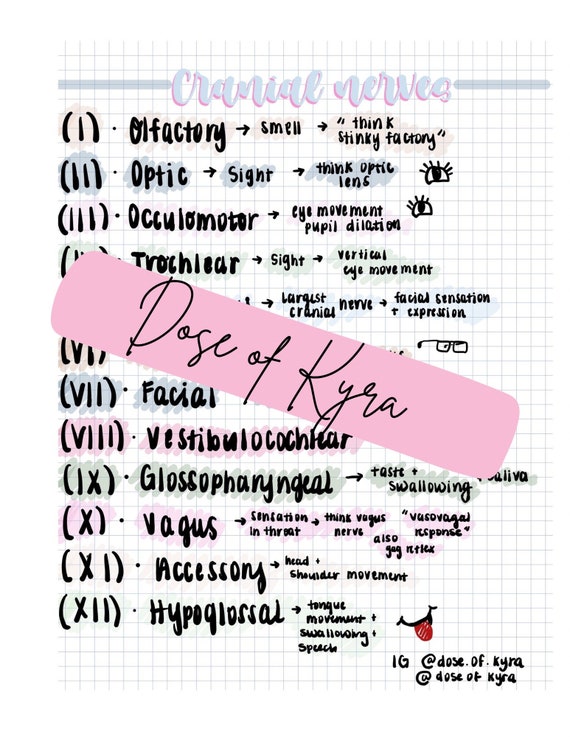 Cranial nerves
(I) · Olfactory → smell → "think stinky factory"
(II) · Optic → Sight → think optic lens
(III) · Occulomotor → eye movement pupil dilation
Trochlear → sight → vertical eye movement
→ largest cranial nerve → facial sensation + expression
Dose of Kyra
(VI)
(VII) · Facial
(VIII) · Vestibulocochlear
(IX) · Glossopharyngeal → taste + swallowing + saliva
(X) · Vagus → sensation in throat → think vagus nerve "vasovagal response" also gag reflex
(XI) · Accessory → head + shoulder movement
(XII) · Hypoglossal → tongue movement + swallowing + speech
IG @dose.of.kyra
@dose of kyra